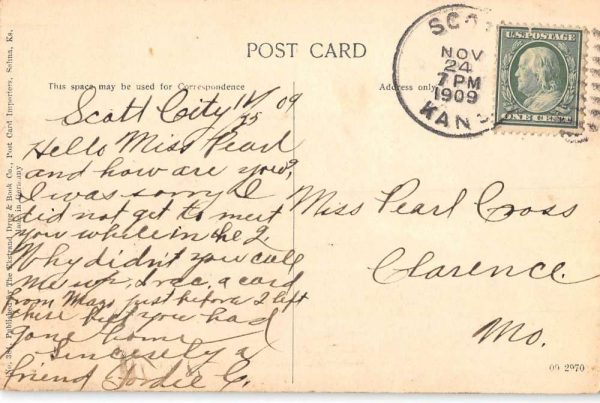 POST CARD
This space may be used for Correspondence
Address only
NOV
24
7 PM
1909
KANS
U.S. POSTAGE
ONE CENT
Scott City 11/25 09
Hello Miss Pearl
and how are you?
I was sorry I
did not get to meet
you while in the
Why didn't you call
me up, I rec. a card
from just before I left
there you had
gone home
Sincerely a
friend C.
Miss Pearl Cross
Clarence.
Mo.
09 2970
Published by The Ekstrand Drug & Book Co., Post Card Importers, Salina, Ks.
Made in Germany